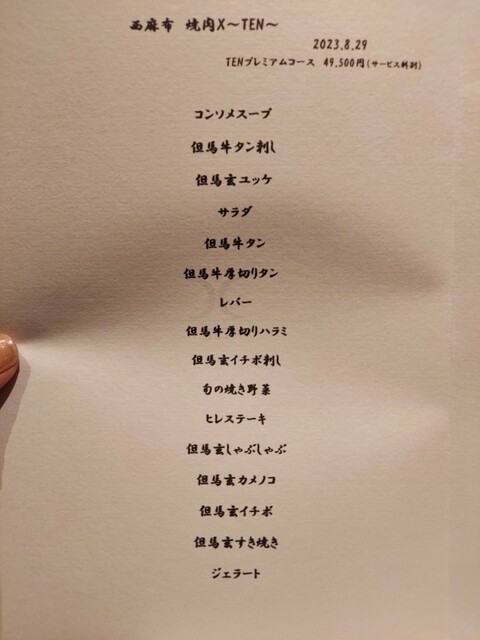 西麻布 焼肉X~TEN~
2023.8.29
TENプレミアムコース 49,500円(サービス料別)
コンソメスープ
但馬牛タン刺し
但馬玄ユッケ
サラダ
但馬牛タン
但馬牛厚切りタン
レバー
但馬牛厚切りハラミ
但馬玄イチボ刺し
旬の焼き野菜
ヒレステーキ
但馬玄しゃぶしゃぶ
但馬玄カメノコ
但馬玄イチボ
但馬玄すき焼き
ジェラート